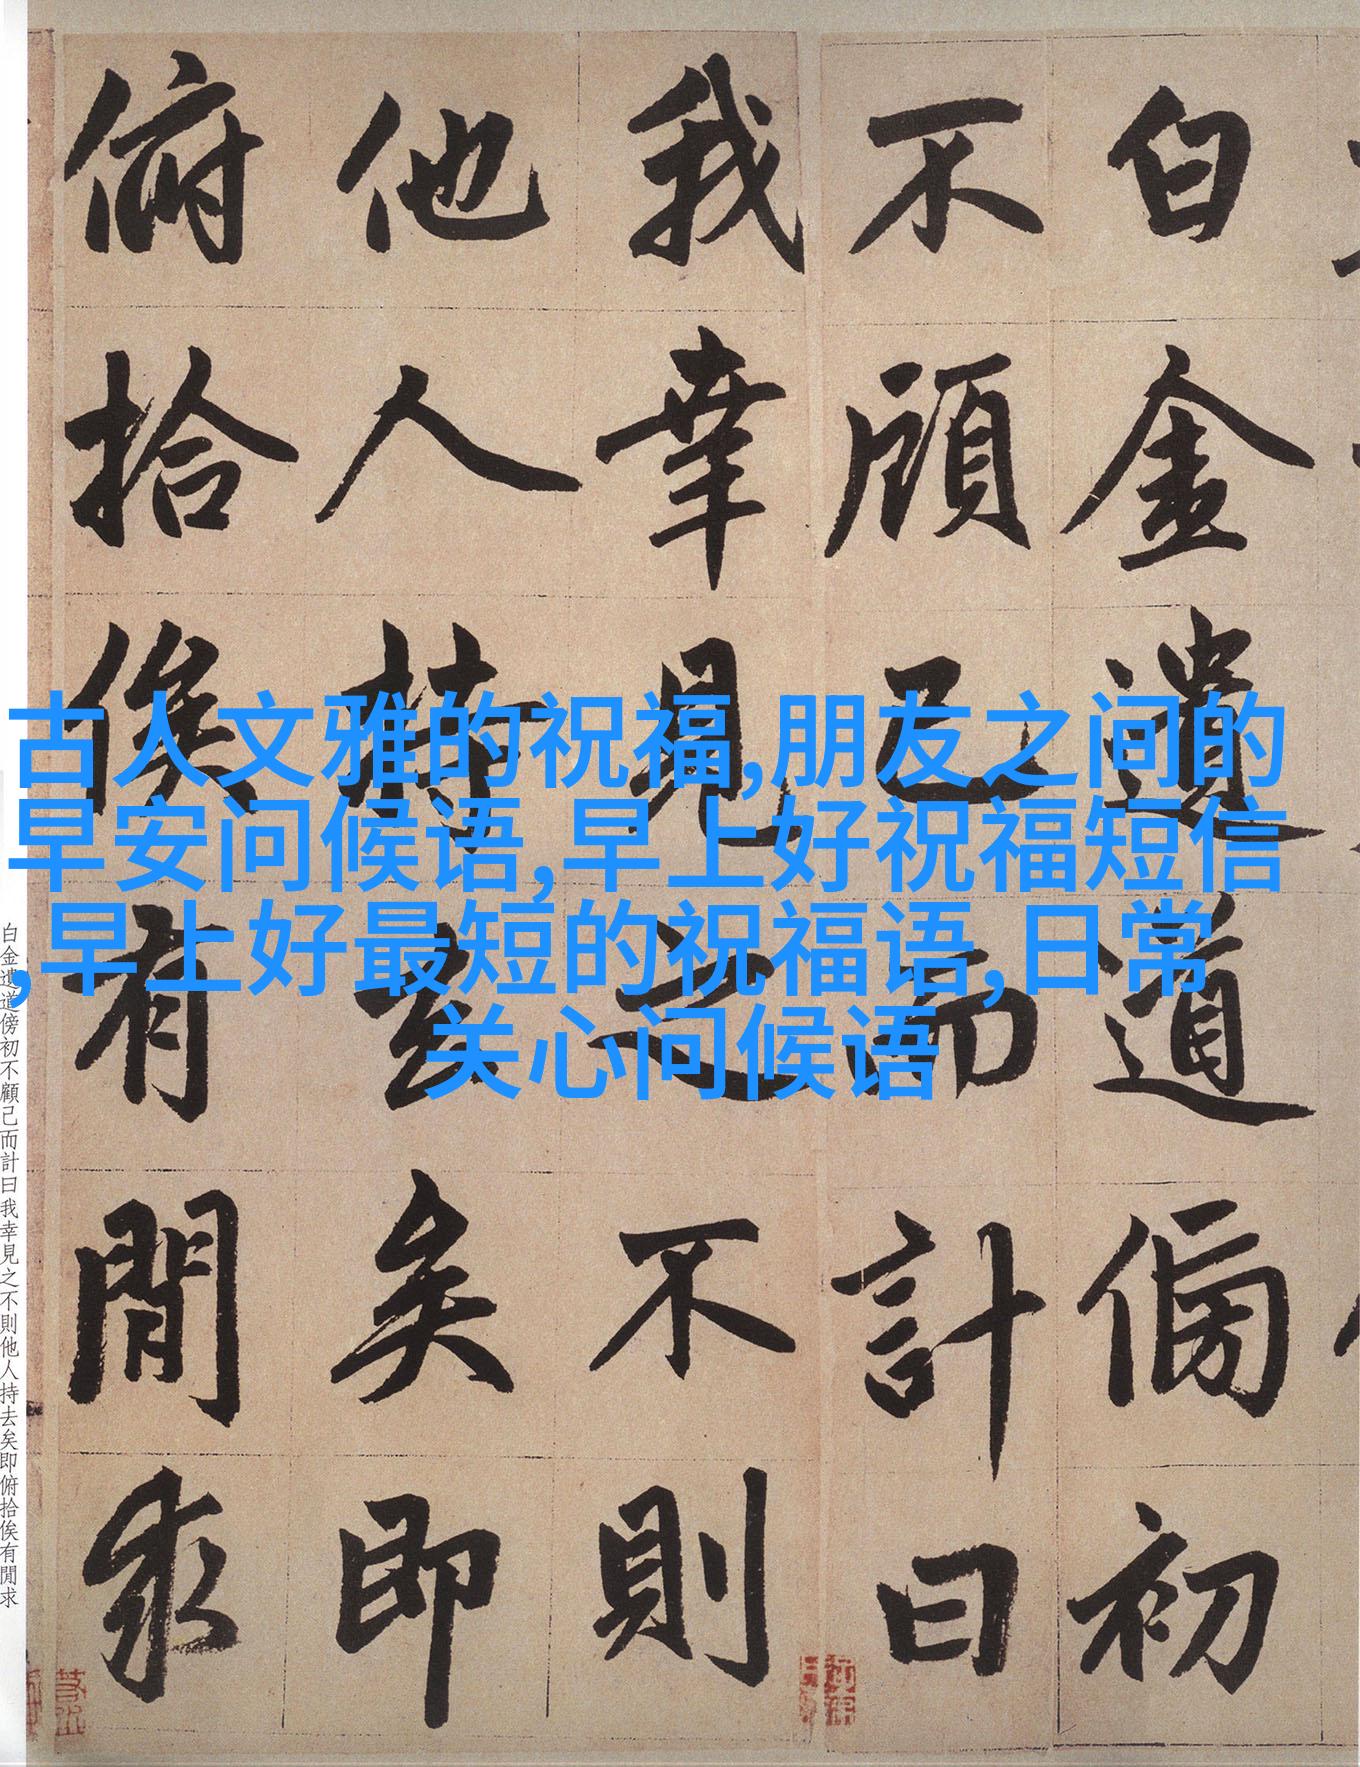 白金遺道傍初
不顧己而計曰
我幸見之不則
他人持去矣即
俯拾俟有閒求
古人文雅的祝福,朋友之间的
早安问候语,早上好祝福短信
,早上好最短的祝福语,日常
关心问候语
白金遺道傍初不顧己而計曰我幸見之不則他人持去矣即俯拾俟有閒求